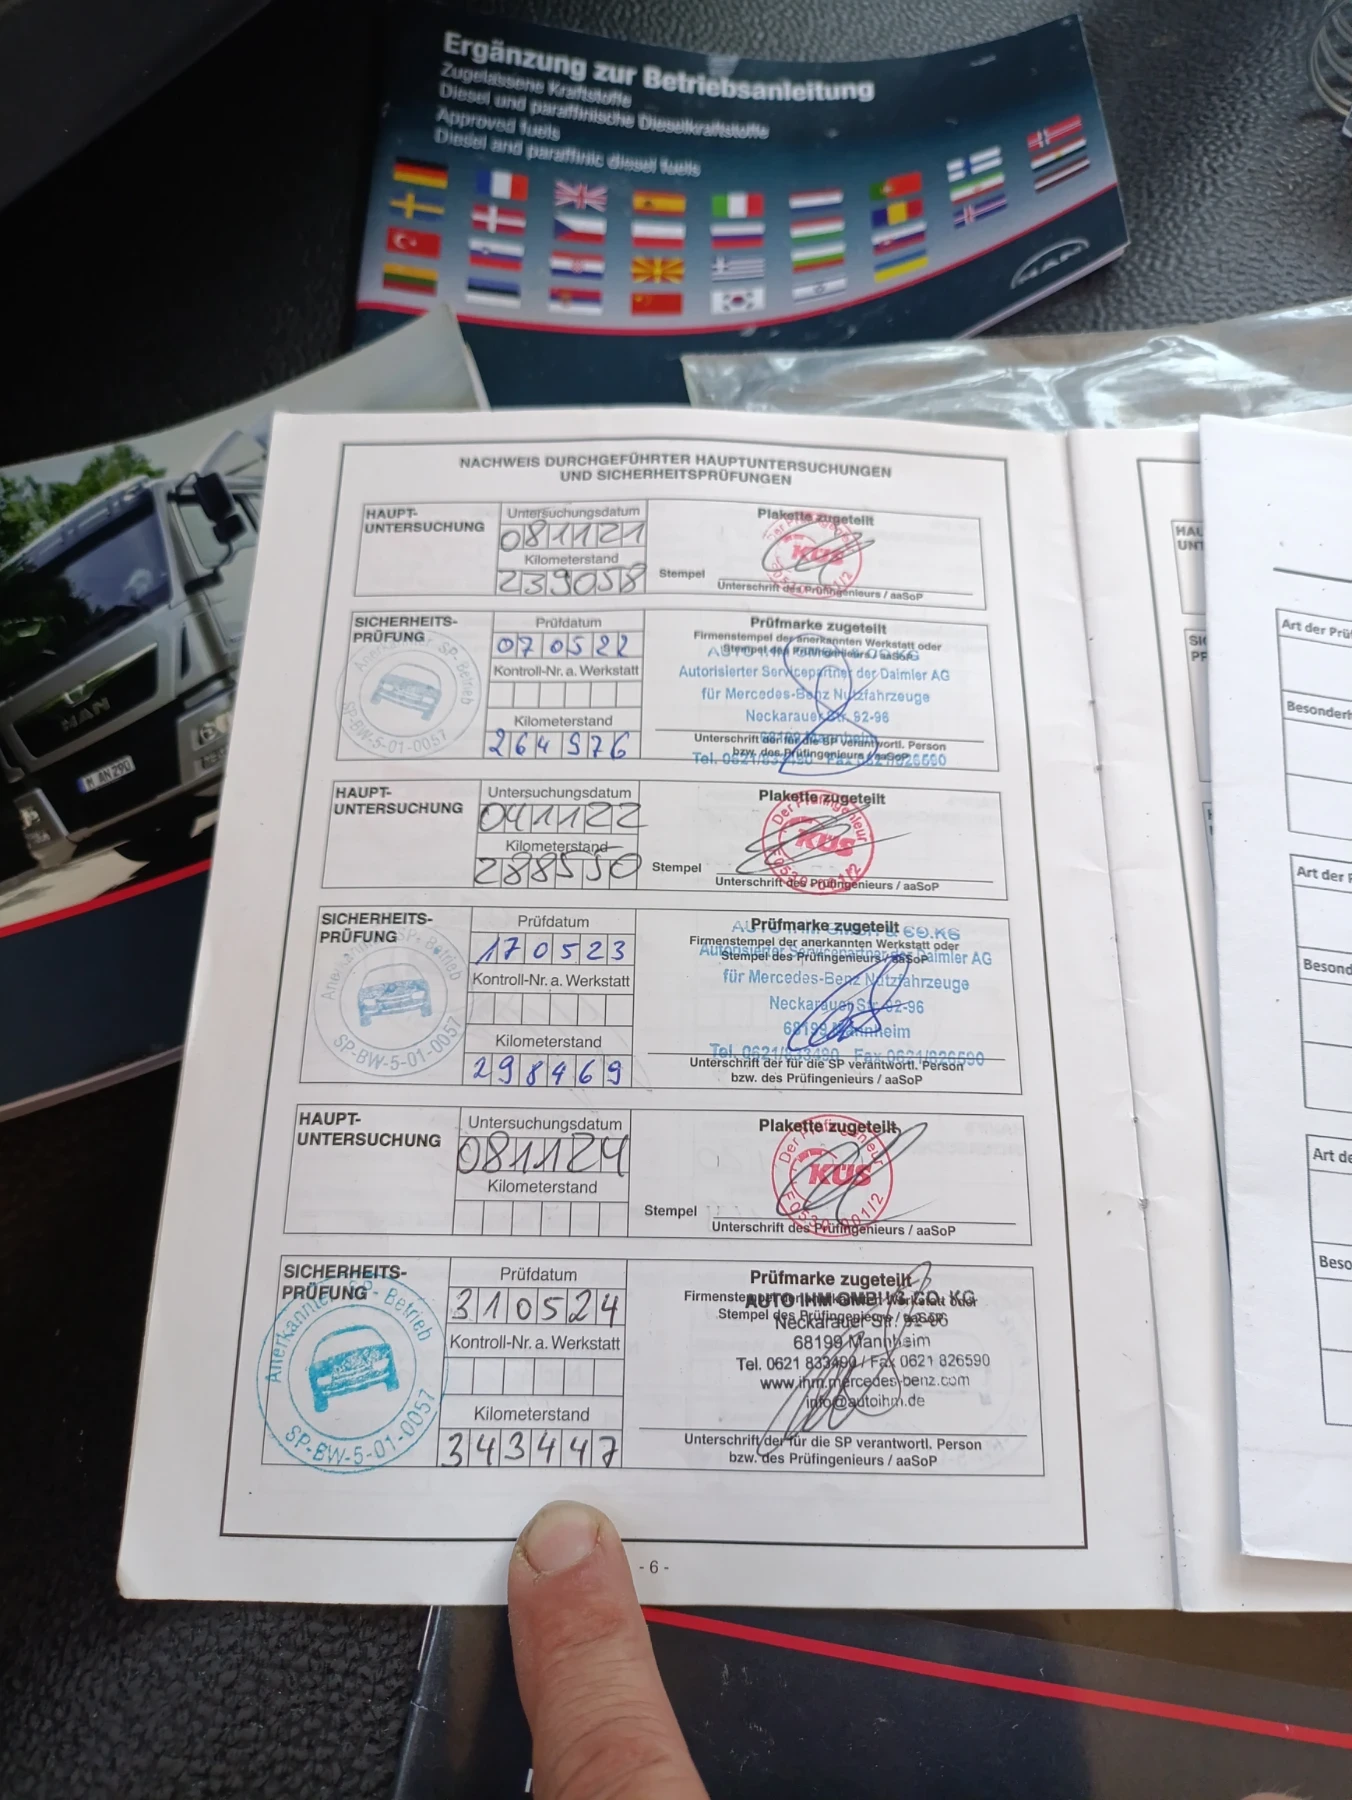 Ergänzung zur Betriebsanleitung
Zugelassene Kraftstoffe
Diesel und paraffinische Dieselkraftstoffe
Approved fuels
Diesel and paraffinic diesel fuels
MAN
MAN
M AN 290
NACHWEIS DURCHGEFÜHRTER HAUPTUNTERSUCHUNGEN
UND SICHERHEITSPRÜFUNGEN
HAUPT-
UNTERSUCHUNG
Untersuchungsdatum
081121
Kilometerstand
239058
Plakette zugeteilt
KÜS
Stempel
Unterschrift des Prüfingenieurs / aaSoP
SICHERHEITS-
PRÜFUNG
Anerkannter SP-Betrieb
SP-BW-5-01-0057
Prüfdatum
070522
Kontroll-Nr. a. Werkstatt
Kilometerstand
264976
Prüfmarke zugeteilt
Firmenstempel der anerkannten Werkstatt oder
Stempel des Prüfingenieurs / aaSoP
Autorisierter Servicepartner der Daimler AG
für Mercedes-Benz Nutzfahrzeuge
Neckarauer Str. 92-96
68199 Mannheim
Unterschrift der für die SP verantwortl. Person
bzw. des Prüfingenieurs / aaSoP
Tel. 0621/833490 Fax 0621/826590
HAUPT-
UNTERSUCHUNG
Untersuchungsdatum
041122
Kilometerstand
288550
Plakette zugeteilt
Der Prüfingenieur
KÜS
Stempel
Unterschrift des Prüfingenieurs / aaSoP
SICHERHEITS-
PRÜFUNG
Anerkannter SP-Betrieb
SP-BW-5-01-0057
Prüfdatum
170523
Kontroll-Nr. a. Werkstatt
Kilometerstand
298469
Prüfmarke zugeteilt
AUTO IHM GMBH & CO.KG
Firmenstempel der anerkannten Werkstatt oder
Stempel des Prüfingenieurs / aaSoP
Autorisierter Servicepartner der Daimler AG
für Mercedes-Benz Nutzfahrzeuge
Neckarauer Str. 92-96
68199 Mannheim
Tel. 0621/833490 Fax 0621/826590
Unterschrift der für die SP verantwortl. Person
bzw. des Prüfingenieurs / aaSoP
HAUPT-
UNTERSUCHUNG
Untersuchungsdatum
081124
Kilometerstand
Plakette zugeteilt
Der Prüfingenieur
KÜS
Stempel
Unterschrift des Prüfingenieurs / aaSoP
SICHERHEITS-
PRÜFUNG
Anerkannter SP-Betrieb
SP-BW-5-01-0057
Prüfdatum
310524
Kontroll-Nr. a. Werkstatt
Kilometerstand
343447
Prüfmarke zugeteilt
Firmenstempel der anerkannten Werkstatt oder
AUTO IHM GMBH & CO. KG
Stempel des Prüfingenieurs / aaSoP
Neckarauer Str.
68199 Mannheim
Tel. 0621 833490 / Fax 0621 826590
www.ihm.mercedes-benz.com
info@autoihm.de
Unterschrift der für die SP verantwortl. Person
bzw. des Prüfingenieurs / aaSoP
- 6 -
HAU
UNT
Art der Prü
Besonderh
Art der P
Besond
Art de
Beso